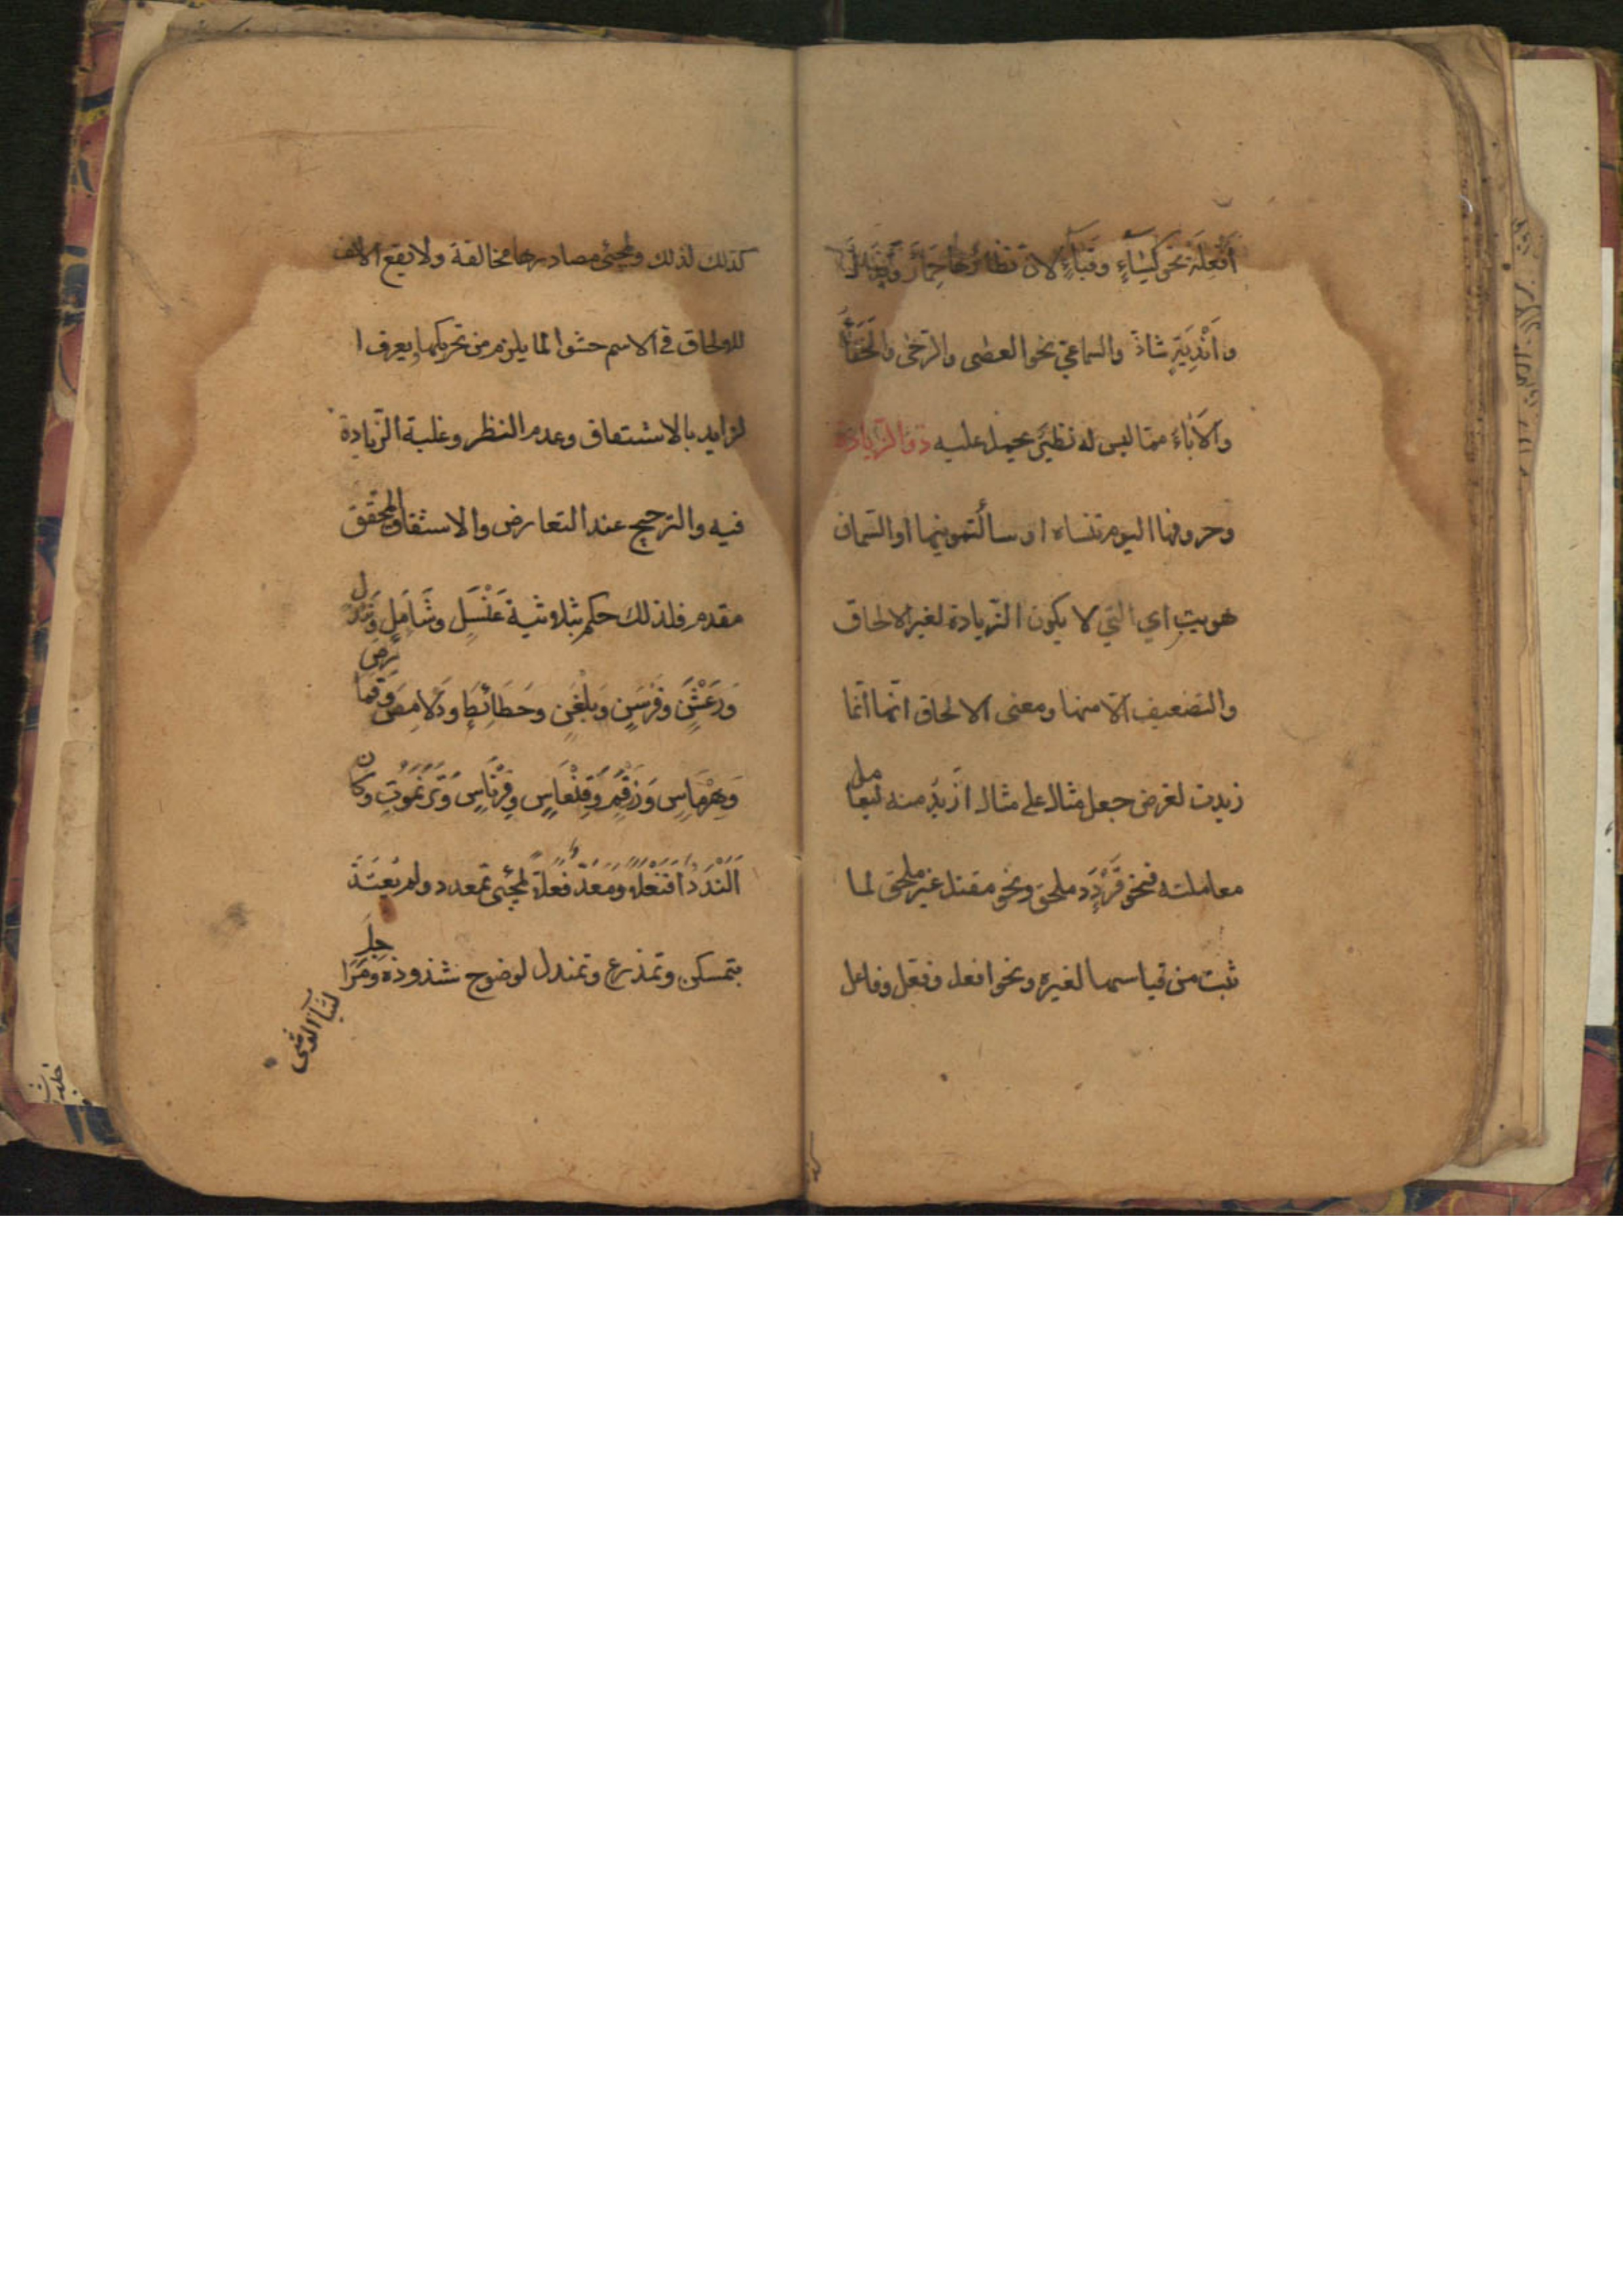 أَفْعِلَة نحو كِسَاءٍ وقَبَاءٍ لان نظائرها حِمَارٌ وقَذَالٌ
واَنْدِيَةٍ شاذ والسماعيّ نحو العصى والرحى والخفاء
والاباء مما ليس له نظير يحمل عليه ذو الزيادة
وحروفها اليوم تنساه او سألتمونيها او السمان
هويت اي التي لا يكون الزيادة لغير الالحاق
والتضعيف الا منها ومعنى الالحاق انها انما
زيدت لغرض جعل مثال على مثال ازيد منه ليعامل
معاملته فنحو قَرْدَد ملحق ونحو مقتل غير ملحق لما
ثبت من قياسها لغيره ونحو افعل وفعّل وفاعل
كذلك لذلك ولمجئ مصادرها مخالفة ولا يقع الالف
للالحاق في الاسم حشوا لما يلزم من تحريكها ويعرف ا
لزايد بالاشتقاق وعدم النظر وغلبة الزيادة
فيه والترجيح عند التعارض والاشتقاق المحقق
مقدم فلذلك حكم بثلاثية عَنْسَلٍ وشَأمَلٍ
ورَعْشَنٍ وفِرْسَنٍ وبِلَغْنٍ وحُطَائِطٍ ودُلَامِصٍ وقمارص
وهِرْمَاسٍ وزُرْقُمٍ وقِنْعَاسٍ وفِرْنَاسٍ وتَرْنَمُوتٍ وكان
اَلَنْدَدٌ اَفَنْعَلًا ومَعَدّ فَعَلًّا لمجئ تمعدد ولم يعتد
بتمسكن وتمدرع وتمندل لوضوح شذوذه ومراجل